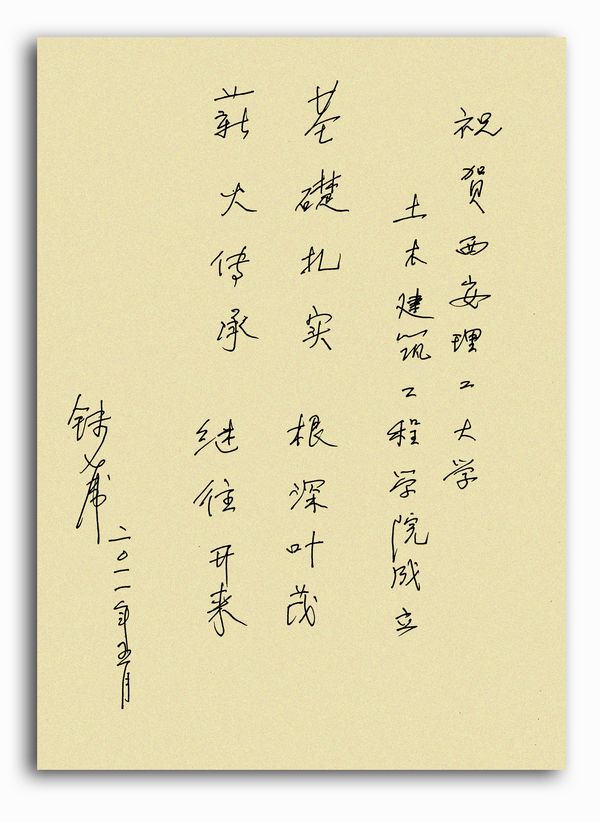 祝賀西安理工大学
土木建筑工程学院成立
基礎扎实 根深叶茂
薪火传承 继往开来
钱七虎
二〇一一年五月